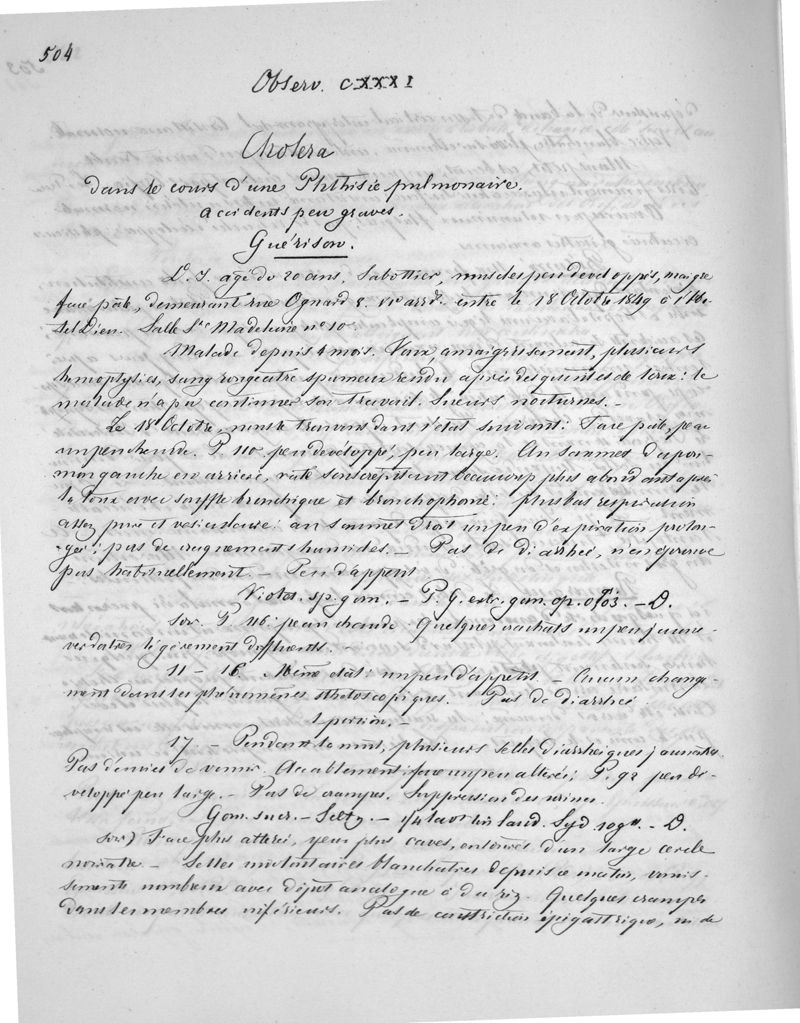 504
Observ. CXXXI
Cholera
dans le cours d'une Phthisie pulmonaire.
accidents peu graves.
Guérison.
D. J. agé de 20 ans, Sabottier, muscles peu developpés, maigre
face pâle, demeurant rue Ognard 8. VIe arrdt. entre le 18 Octobre 1849 à l'Hô-
tel Dieu. Salle Ste Madeleine n° 10.
Malade depuis 4 mois. Toux amaigrissement, plusieurs
hemoptysies, sang rougeatre spumeux rendu après des quintes de toux: le
malade n'a pu continuer son travail. Sueurs nocturnes. –
Le 18 Octobre, nous le trouvons dans l'état suivant: Face pâle, peau
un peu chaude. P. 110 peu développé, peu large. Au sommet du pou-
mon gauche en arrière, râle souscrépitant beaucoup plus abondant après
la toux avec souffle bronchique et bronchophonie: plus bas respiration
assez pure et vesiculaire: au sommet droit un peu d'expiration prolon-
gée; pas de craquements humides. – Pas de diarrhée, n'en éprouve
pas habituellement. – Peu d'appetit
Violet. sp. gom. – P. G. extr. gom. op. 0,05. – D.
soir. P. 116: peau chaude: Quelques crachats un peu jaune-
verdatres légèrement diffluents. –
11 – 16. Même état: un peu d'appetit. – Aucun change-
ment dans les phénomènes sthetoscopiques. Pas de diarrhée
1 portion. –
17. – Pendant la nuit, plusieurs selles diarrheiques jaunatres.
Pas d'envies de vomir. Accablement: face un peu altérée; P. 92 peu dé-
veloppé peu large. – Pas de crampes. Suppression des urines.
Gom. sucr. – Seltz. – 1/4 lavt lin laud. Syd 10 gtt. – D.
soir) Face plus altérée, yeux plus caves, entourés d'un large cercle
noirâtre – Selles involontaires blanchatres depuis ce matin, vomis-
sements nombreux avec dépôt analogue à du riz. Quelques crampes
dans les membres inférieurs. Pas de constriction épigastrique, ni de